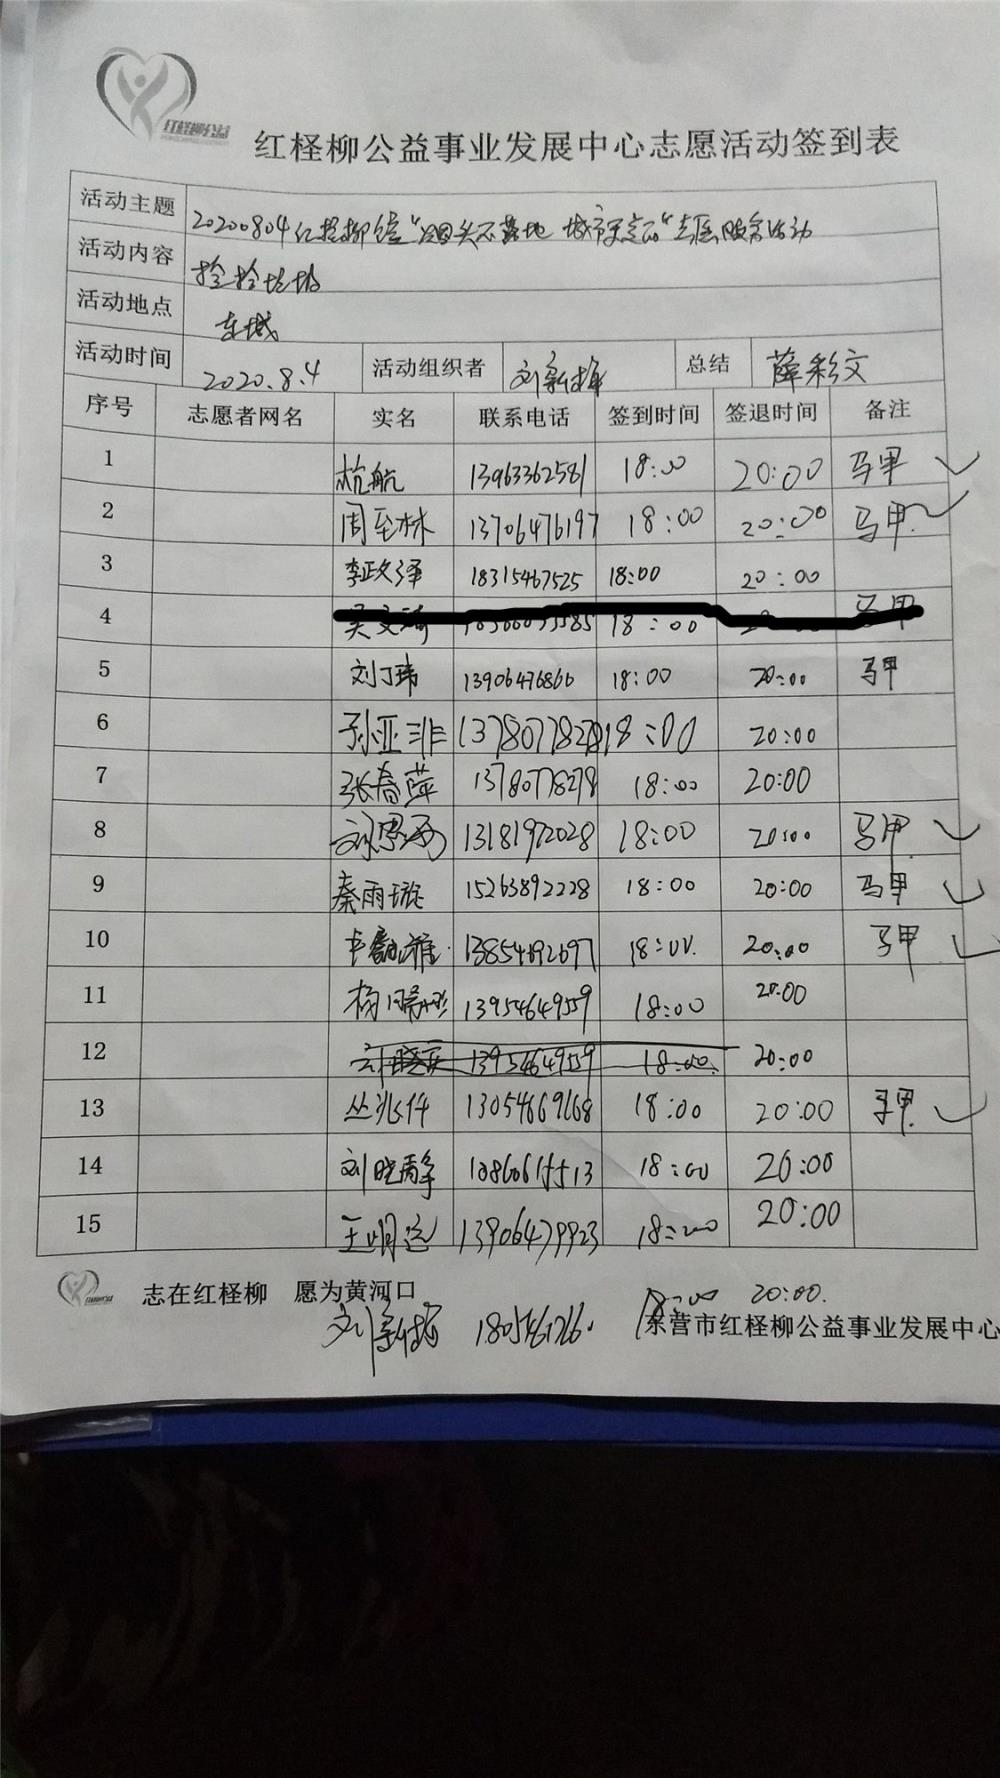 红柽柳公益
红柽柳公益事业发展中心志愿活动签到表
活动主题 20200804红柽柳 "烟头不落地 城市更亮丽"志愿服务活动
活动内容 捡拾垃圾
活动地点 东城
活动时间 2020.8.4 活动组织者 刘新梅 总结 薛彩文
序号 志愿者网名 实名 联系电话 签到时间 签退时间 备注
1 杭航 13963362581 18:00 20:00 马甲
2 周至林 13706476197 18:00 20:00 马甲
3 李政泽 18315467525 18:00 20:00
4 18:00 马甲
5 刘丁玮 13906476866 18:00 20:00 马甲
6 孙亚非 18:00 20:00
7 张春萍 13780778278 18:00 20:00
8 13181972028 18:00 20:00 马甲
9 秦雨璇 15263892228 18:00 20:00 马甲
10 13854692697 18:00 20:00 马甲
11 杨 13954649559 18:00 20:00
12 13954649559 18:00 20:00
13 丛兆仟 13054669168 18:00 20:00 马甲
14 刘晓静 18:00 20:00
15 王明远 13906479923 18:00 20:00
志在红柽柳 愿为黄河口
刘新梅 18:00 20:00.
东营市红柽柳公益事业发展中心